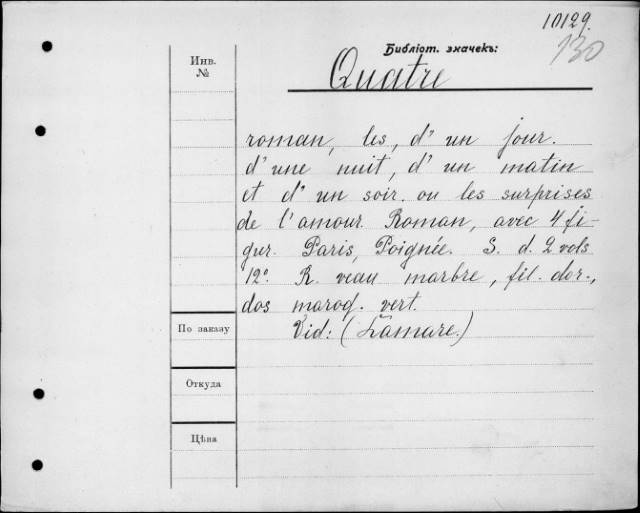 10129.
130
Библіот. значекъ:
Инв.
№
Quatre
roman, les, d'un jour.
d'une nuit, d'un matin
et d'un soir. ou les surprises
de l'amour. Roman, avec 4 fi-
gur. Paris, Poignée. S. d. 2 vols
12º. R. veau marbre, fil. dor.,
dos maroq. vert.
Vid: (Lamare.)
По заказу
Откуда
Цѣна